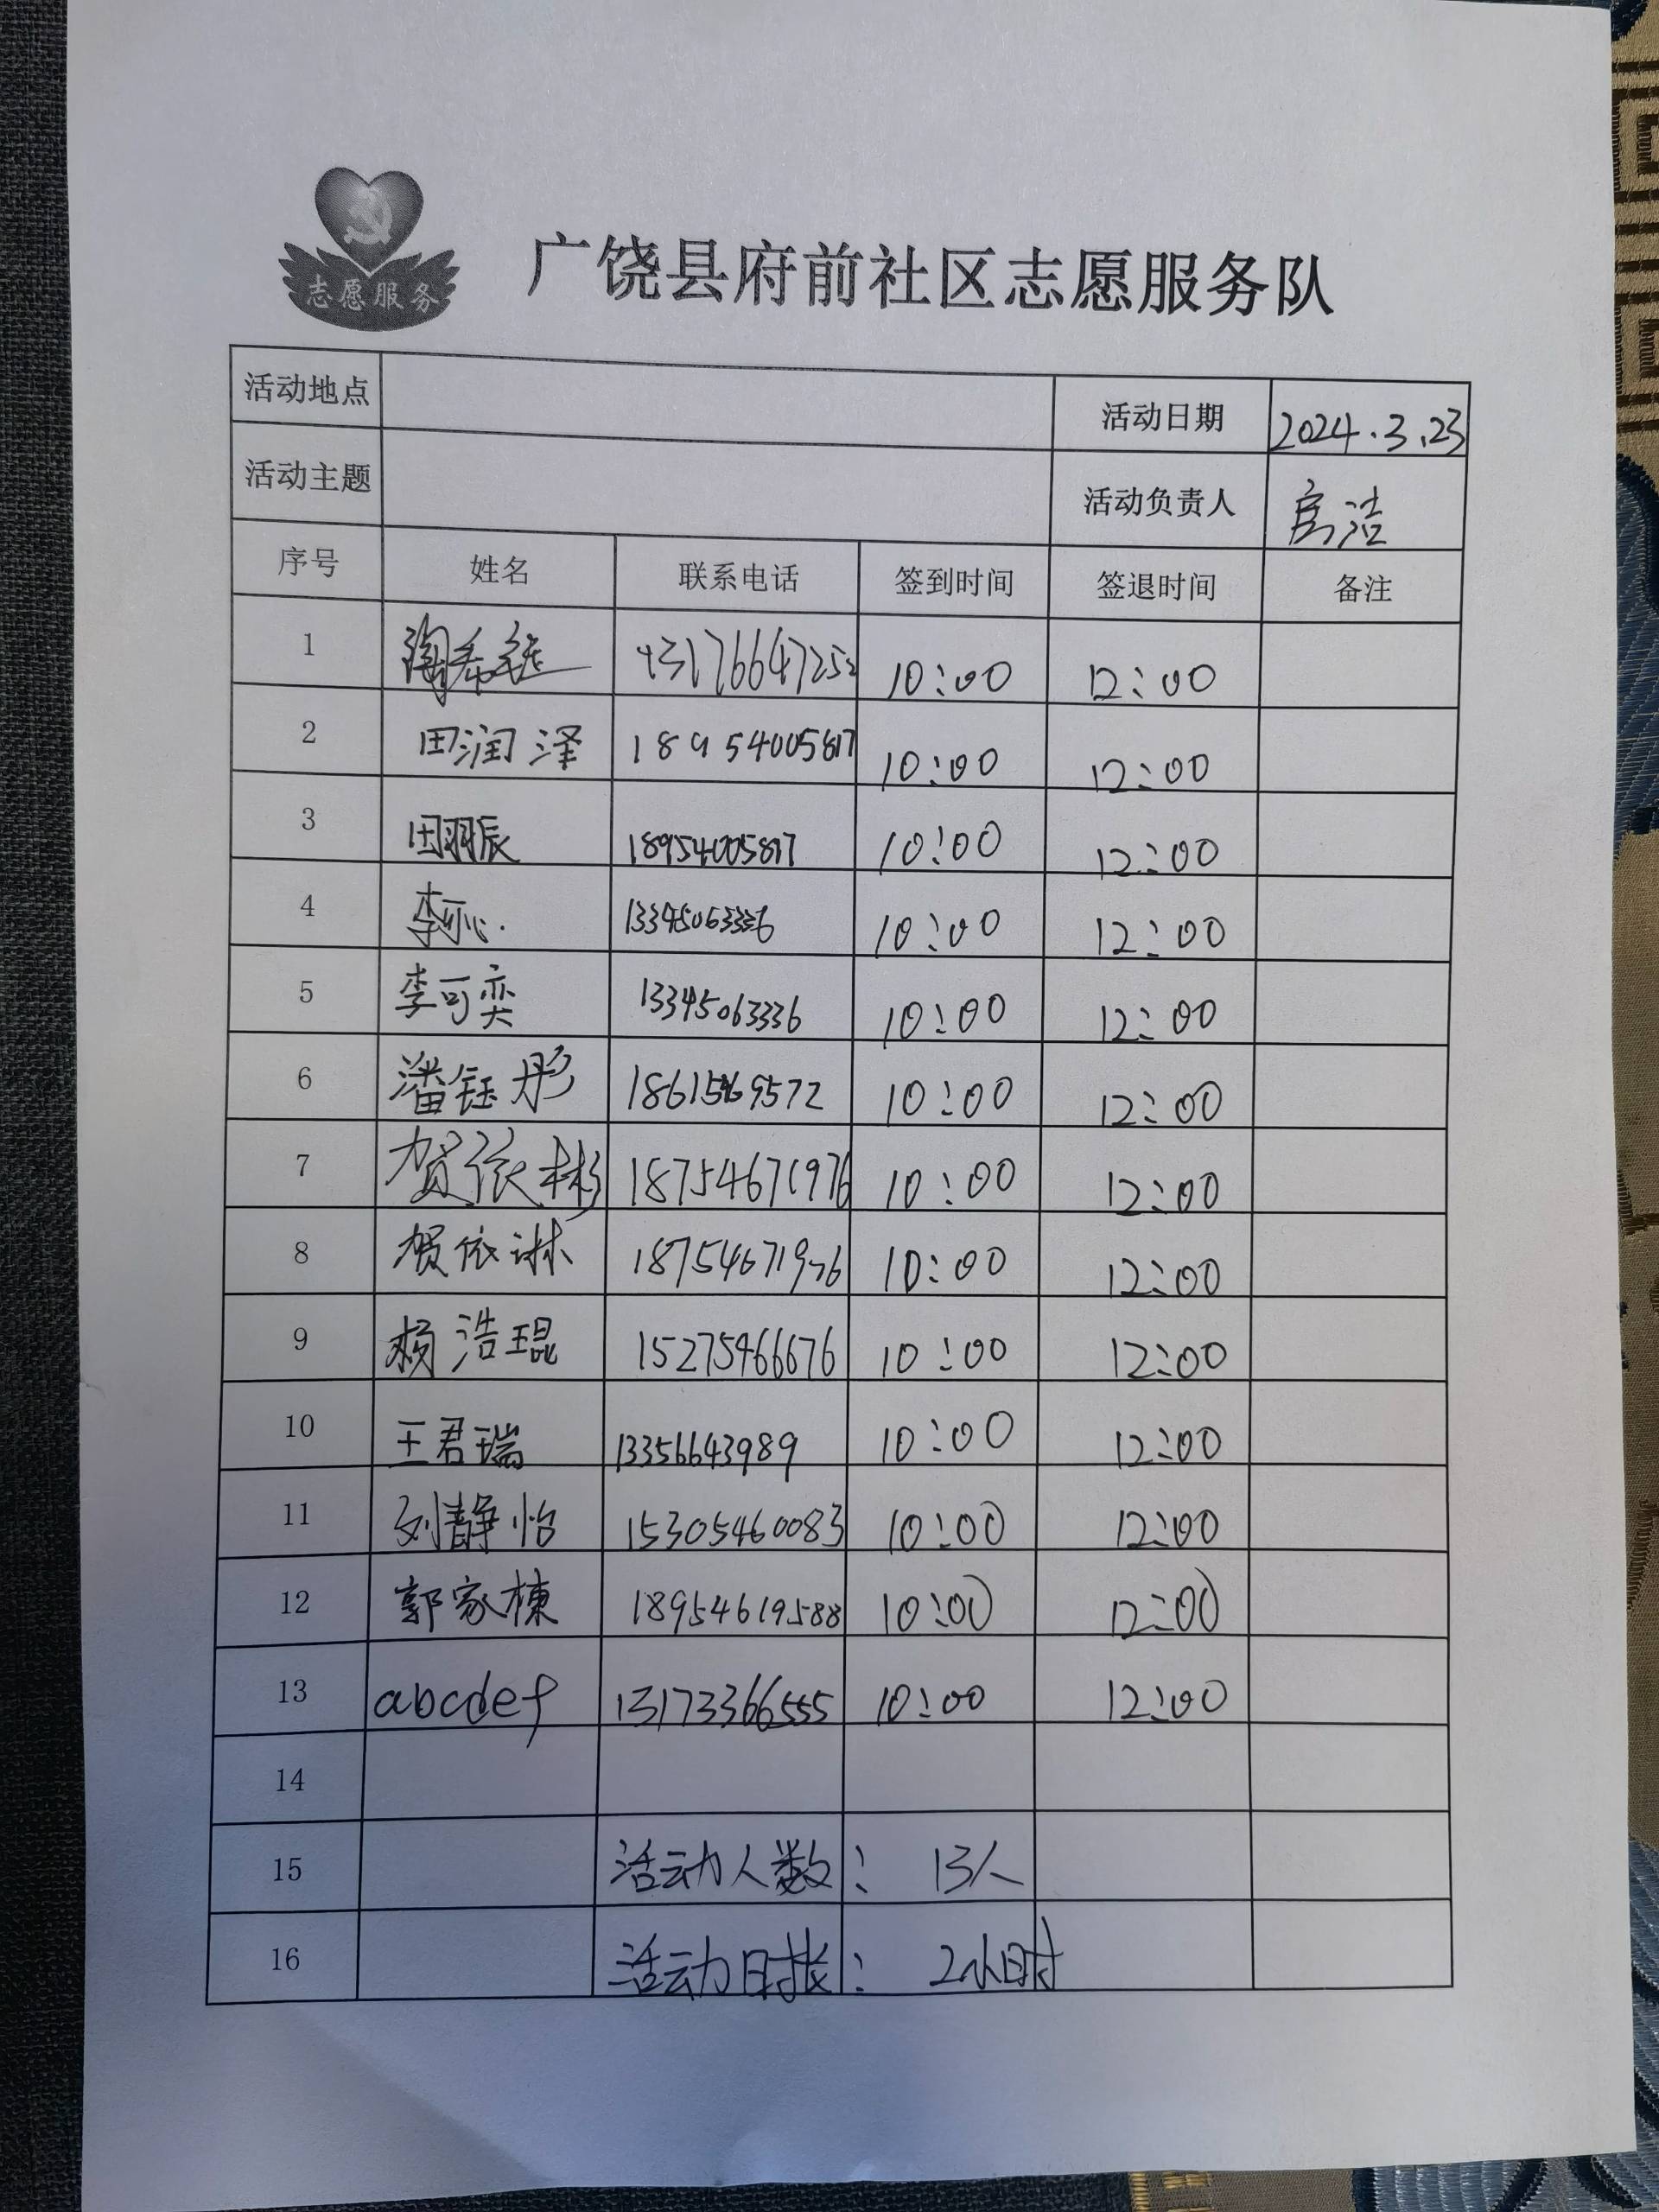 志愿服务
广饶县府前社区志愿服务队
活动地点 活动日期 2024.3.23
活动主题 活动负责人 房洁
序号 姓名 联系电话 签到时间 签退时间 备注
1 陶希 13176647252 10:00 12:00
2 田润泽 18954005817 10:00 12:00
3 田羽辰 18954005817 10:00 12:00
4 李可心 13345063336 10:00 12:00
5 李可奕 13345063336 10:00 12:00
6 潘钰彤 10:00 12:00
7 贺依彬 18754671976 10:00 12:00
8 贺依淋 18754671976 10:00 12:00
9 杨浩琨 15275466676 10:00 12:00
10 王君瑞 13356643989 10:00 12:00
11 刘静怡 15305460083 10:00 12:00
12 郭家栋 18954619588 10:00 12:00
13 abcdef 13173366555 10:00 12:00
14
15 活动人数: 13人
16 活动时长: 2小时